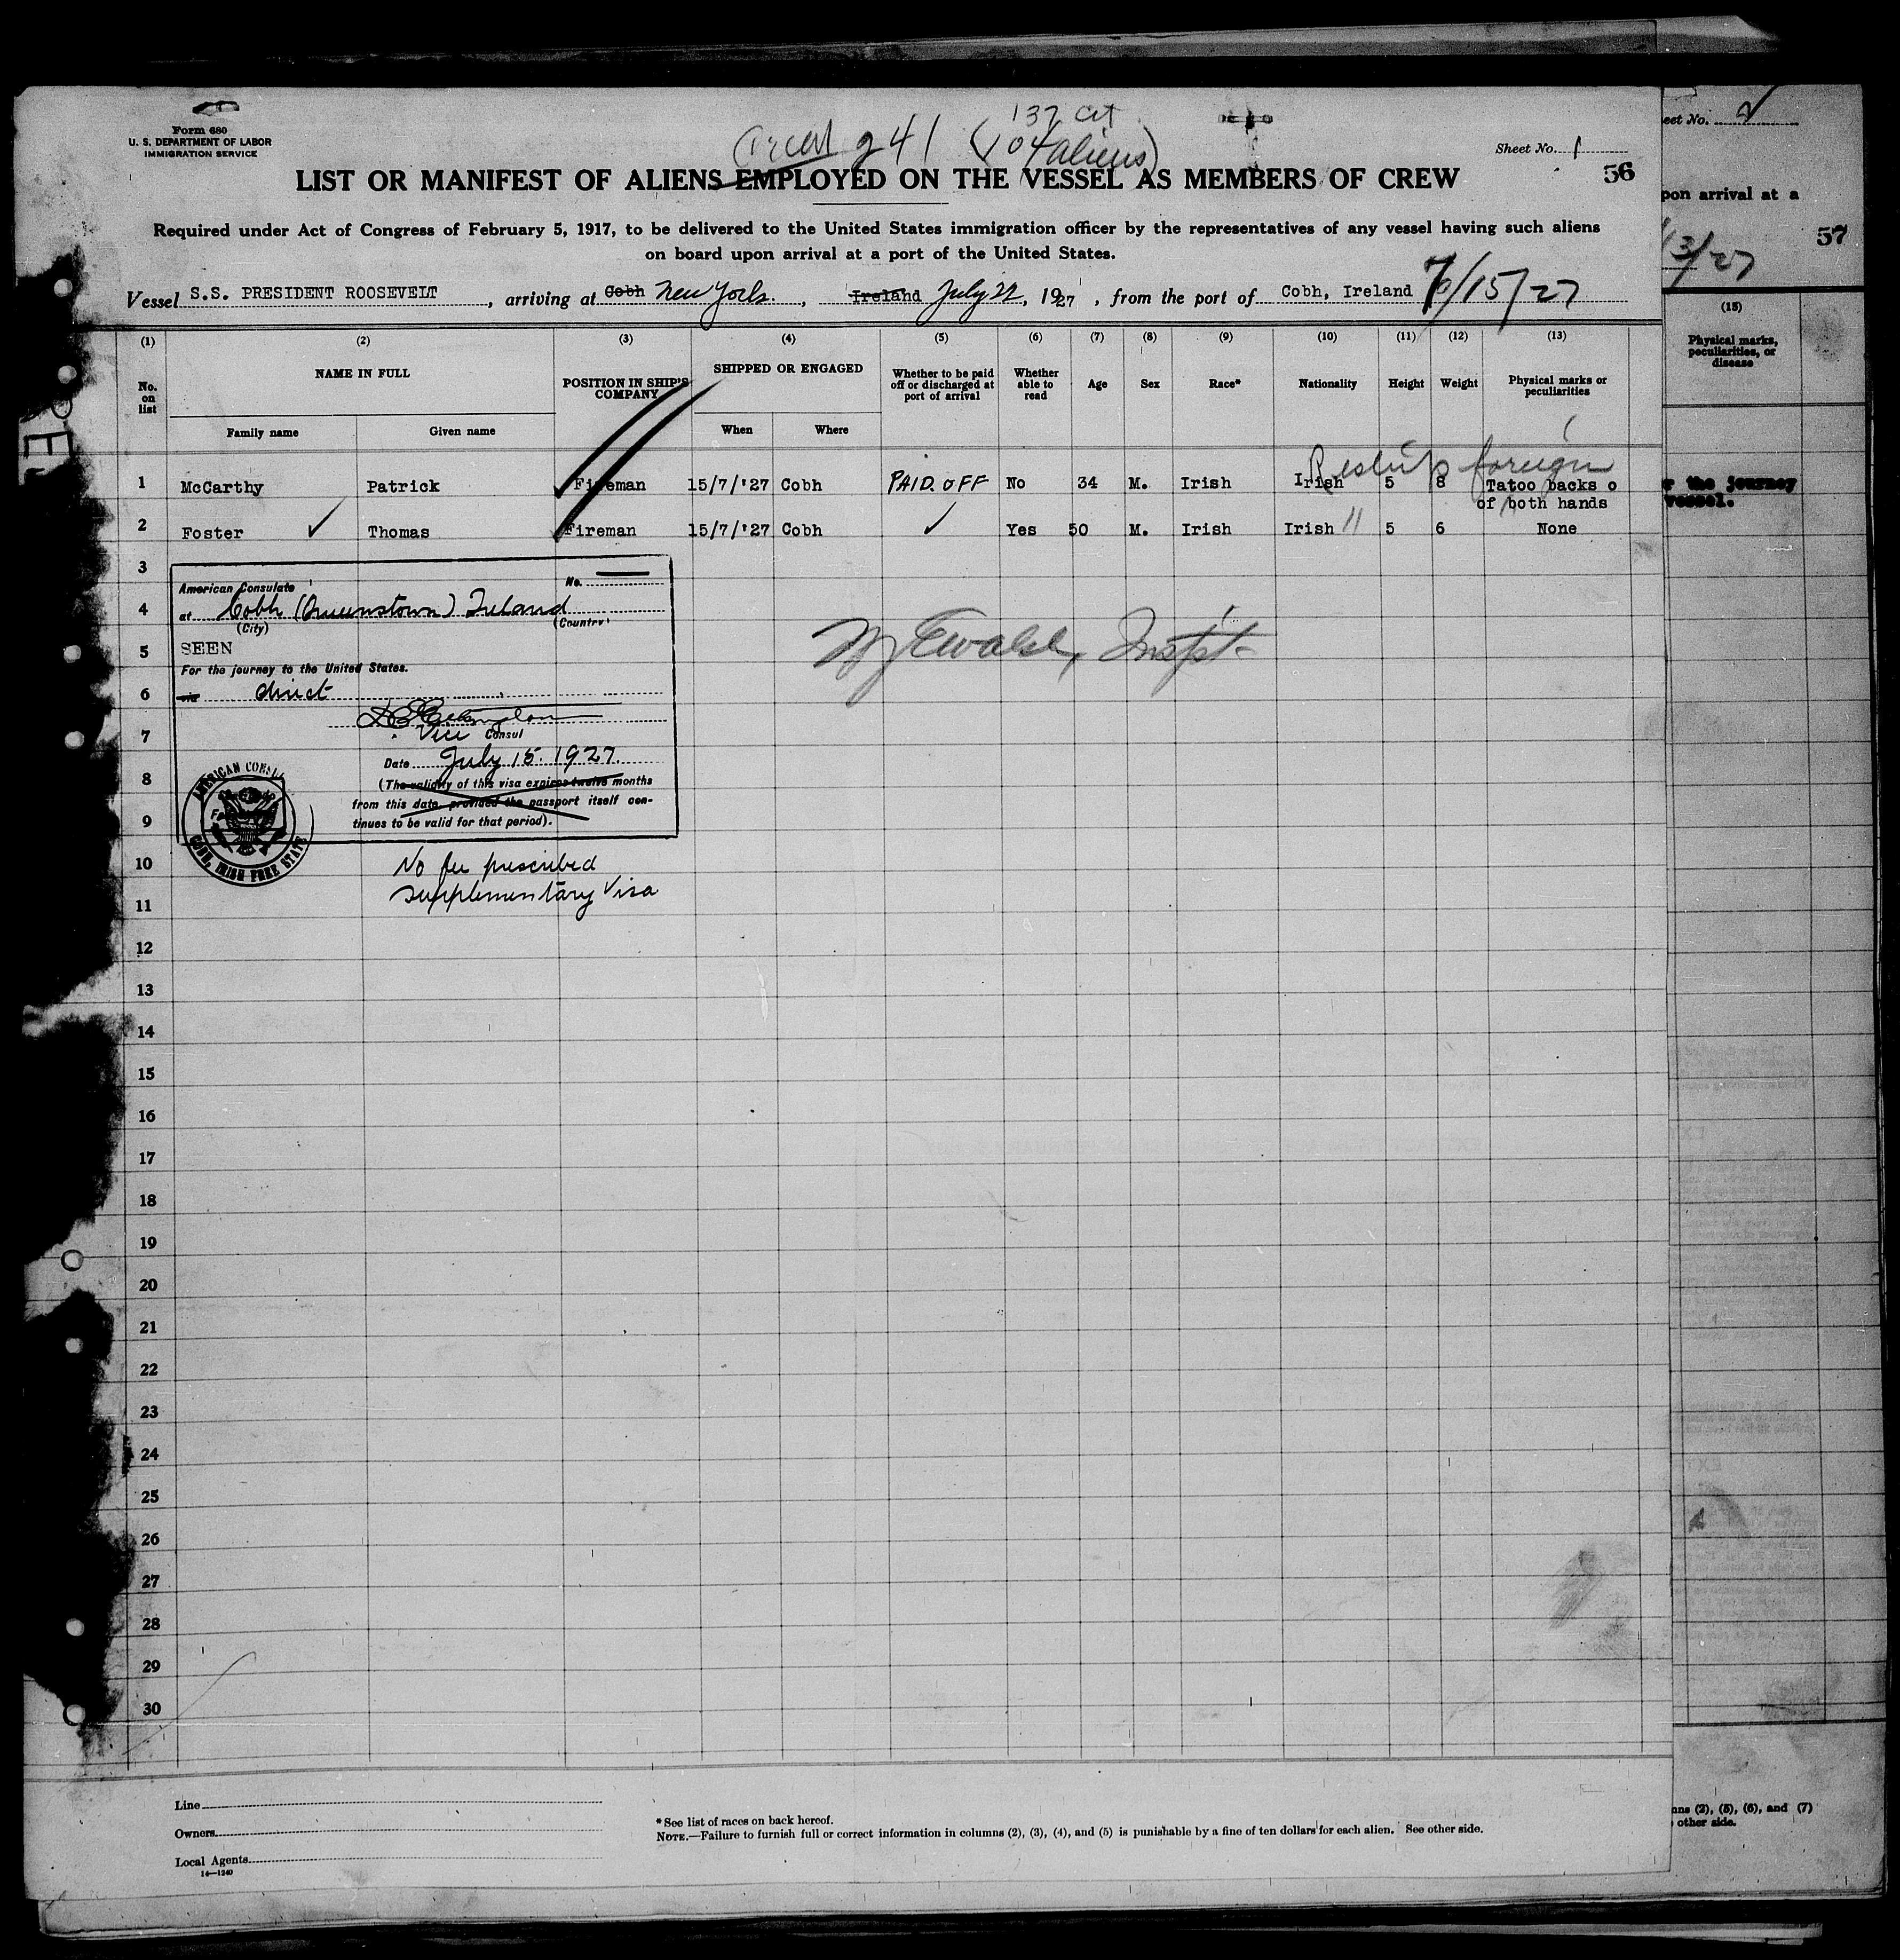 Form 680
U. S. DEPARTMENT OF LABOR
IMMIGRATION SERVICE
241 (137 cit
104 aliens)
Sheet No. 1
56
LIST OR MANIFEST OF ALIENS EMPLOYED ON THE VESSEL AS MEMBERS OF CREW
Required under Act of Congress of February 5, 1917, to be delivered to the United States immigration officer by the representatives of any vessel having such aliens
on board upon arrival at a port of the United States.
Vessel S.S. PRESIDENT ROOSEVELT, arriving at Cobh New York., Ireland July 22, 1927, from the port of Cobh, Ireland 7/15/27
(1) (2) (3) (4) (5) (6) (7) (8) (9) (10) (11) (12) (13)
No. on list
NAME IN FULL
Family name
Given name
POSITION IN SHIP'S COMPANY
SHIPPED OR ENGAGED
When
Where
Whether to be paid off or discharged at port of arrival
Whether able to read
Age
Sex
Race*
Nationality
Height
Weight
Physical marks or peculiarities
foreign
1 McCarthy Patrick Fireman 15/7/'27 Cobh PAID. OFF No 34 M. Irish Irish 5 8 Tatoo backs o
of both hands
2 Foster Thomas Fireman 15/7/'27 Cobh ✓ Yes 50 M. Irish Irish 11 5 6 None
3
American Consulate No.
4
at Cobh (Queenstown) Ireland
(City) (Country)
5
SEEN
For the journey to the United States.
6
via direct
7
Vice Consul
Date July 15. 1927.
8
(The validity of this visa expires twelve months
from this date, provided the passport itself con-
9
tinues to be valid for that period).
AMERICAN CONSUL
COBH, IRISH FREE STATE
10
No fee prescribed
supplementary Visa
11
Walsh, Inspt.
12
13
14
15
16
17
18
19
20
21
22
23
24
25
26
27
28
29
30
Line
Owners
Local Agents
14—1240
* See list of races on back hereof.
NOTE.—Failure to furnish full or correct information in columns (2), (3), (4), and (5) is punishable by a fine of ten dollars for each alien. See other side.
eet No. 2
pon arrival at a
57
13/27
(15)
Physical marks,
peculiarities, or
disease
r the journey
vessel.
ns (2), (5), (6), and (7)
other side.